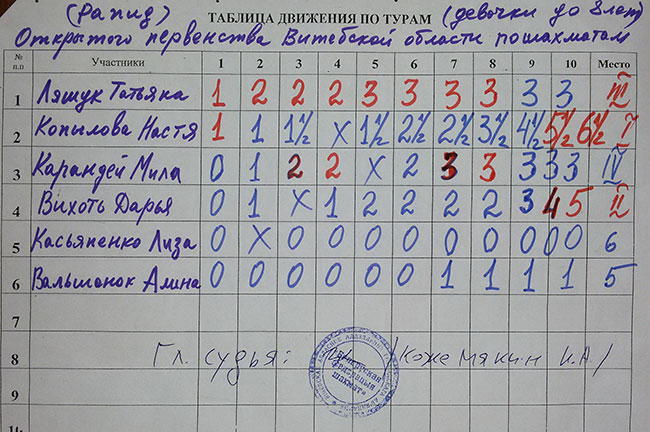 (Рапид) ТАБЛИЦА ДВИЖЕНИЯ ПО ТУРАМ (девочки до 8 лет)
Открытого первенства Витебской области по шахматам
№ п.п Участники 1 2 3 4 5 6 7 8 9 10 Место
1 Ляшук Татьяна 1 2 2 2 3 3 3 3 3 3 III
2 Копылова Настя 1 1 1½ X 1½ 2½ 2½ 3½ 4½ 5½ 6½ I
3 Карандей Мила 0 1 2 2 X 2 3 3 3 3 3 IV
4 Вихоть Дарья 0 1 X 1 2 2 2 2 3 4 5 II
5 Касьяненко Лиза 0 X 0 0 0 0 0 0 0 0 0 6
6 Вальшонок Алина 0 0 0 0 0 0 1 1 1 1 5
7
8 Гл. судья: /Кожемякин И.А/
9